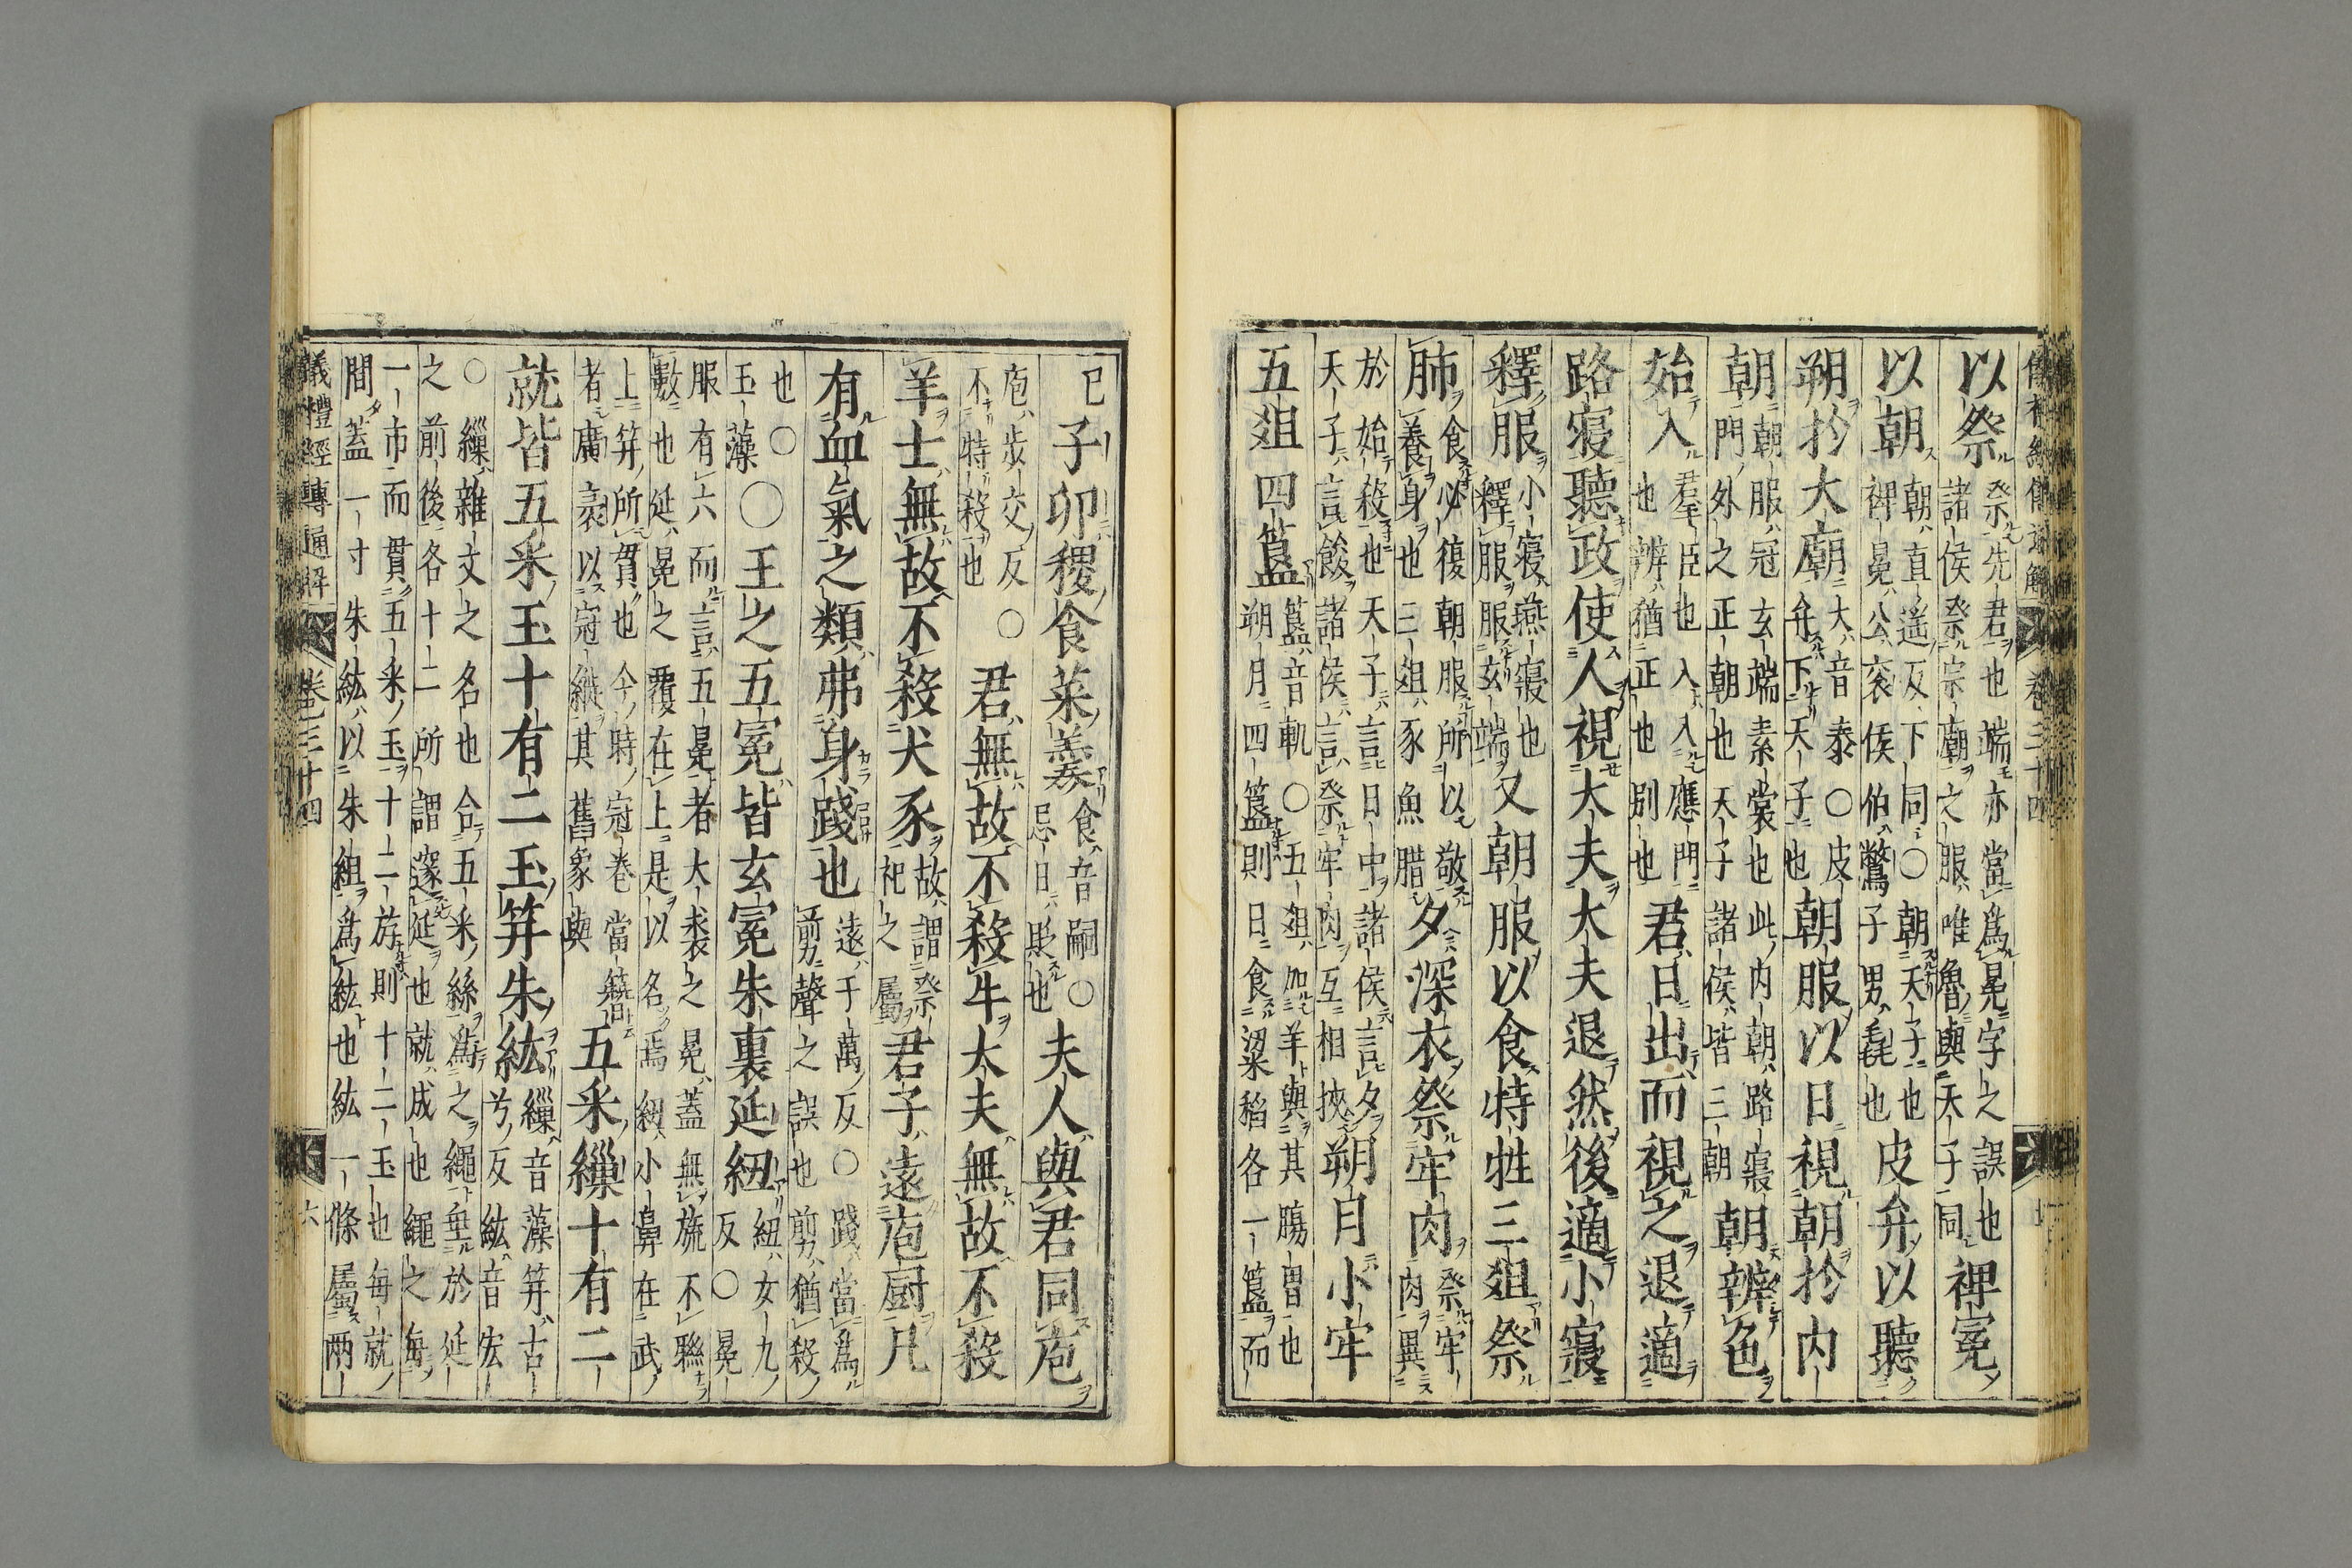 以祭祭先君也端亦當爲冕字之誤也諸侯祭宗廟之服唯魯與天子同裨冕
以朝朝直遥反下同○朝天子也裨冕公衮侯伯鷩子男毳也皮弁以聽
朔於大廟大音泰○皮弁下天子也朝服以日視朝於内
朝朝服冠玄端素裳也此内朝路寢門外之正朝也天子諸侯皆三朝朝辨色
始入群臣也入入應門也辨猶正也別也君日出而視之退適
路寢聽政使人視大夫大夫退然後適小寢
釋服小寢燕寢也釋服服玄端又朝服以食特牲三俎祭
肺食必復朝服所以敬養身也三俎豕魚腊夕深衣祭牢肉祭牢肉異
於始殺也天子言日中諸侯言夕天子言餕諸侯言祭牢肉互相挾朔月小牢
五俎四簋簋音軌○五俎加羊與其腸胃也朔月四簋則日食粱稻各一簋而
已子卯稷食菜羹食音嗣○忌日貶也夫人與君同庖
庖步交反○不特殺也君無故不殺牛大夫無故不殺
羊士無故不殺犬豕故謂祭祀之屬君子遠庖厨凡
有血氣之類弗身踐也遠于萬反○踐當爲翦聲之誤也翦猶殺
也○玉藻○王之五冕皆玄冕朱裏延紐紐女九反○冕
服有六而言五冕者大裘之冕蓋無旒不聯數也延冕之覆在上是以名焉紐小鼻在武
上笄所貫也今時冠卷當簪者廣袤以冠縰其舊象與五采繅十有二
就皆五采玉十有二玉笄朱紘繅音藻笄古兮反紘音宏
○繅雜文之名也合五采絲爲之繩垂於延之前後各十二所謂邃延也就成也繩之每
一帀而貫五采玉十二斿則十二玉也每就間蓋一寸朱紘以朱組爲紘也紘一條屬兩
儀禮經轉通解
卷三十四
六